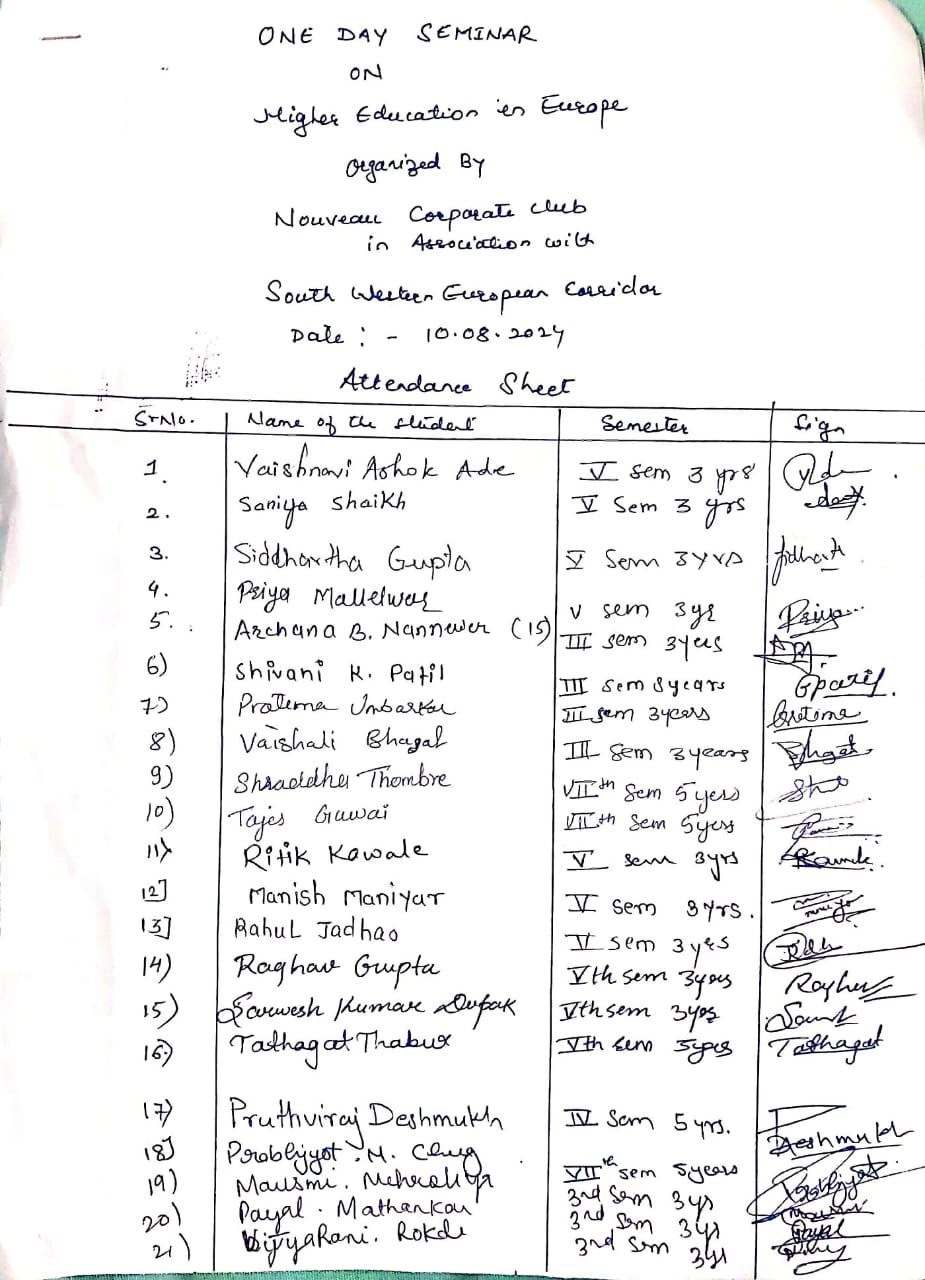 ONE DAY SEMINAR
ON
Higher Education in Europe
Organized By
Nouveau Corporate club
in Association with
South Western European Corridor
Date : - 10.08.2024
Attendance Sheet
Sr No. Name of the student Semester Sign
1. Vaishnavi Ashok Ade V Sem 3 yrs
2. Saniya Shaikh V Sem 3 yrs
3. Siddhartha Gupta V Sem 3 yrs
4. Priya Mallelwar V sem 3 yr Priya
5. Archana B. Nannewer (15) III sem 3 years
6) Shivani K. Patil III sem 3 years
7) Pratima Umbarkar III sem 3 years
8) Vaishali Bhagat III Sem 3 years Bhagat
9) Shraddha Thombre VIIth Sem 5 yers
10) Tajes Gawai VIIth Sem 5 yers
11) Ritik Kawale V sem 3 yrs
12] Manish Maniyar V Sem 3 yrs.
13] Rahul Jadhao V sem 3 yes
14) Raghav Gupta Vth sem 3 yers
15) Sarwesh Kumar Vth sem 3 yes
16) Tathagat Vth sem 5 yers Tathagat
17) Pruthviraj Deshmukh IV Sem 5 yrs. Deshmukh
18] M. VIIth sem 5 years
19) Mausmi. 3rd Sem 3 yrs
20) Payal. Mathankar 3rd Sem 3 yrs Payal
21) Rokde 3rd Sem 3 yrs